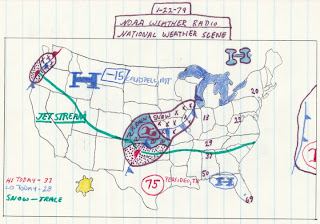 1-22-79
NOAA WEATHER RADIO
NATIONAL WEATHER SCENE
H
H
-15
KALISPELL, MT
SNOW
20
JET STREAM
18
29
37
50
69
HI TODAY - 33
LO TODAY - 28
SNOW - TRACE
75
H